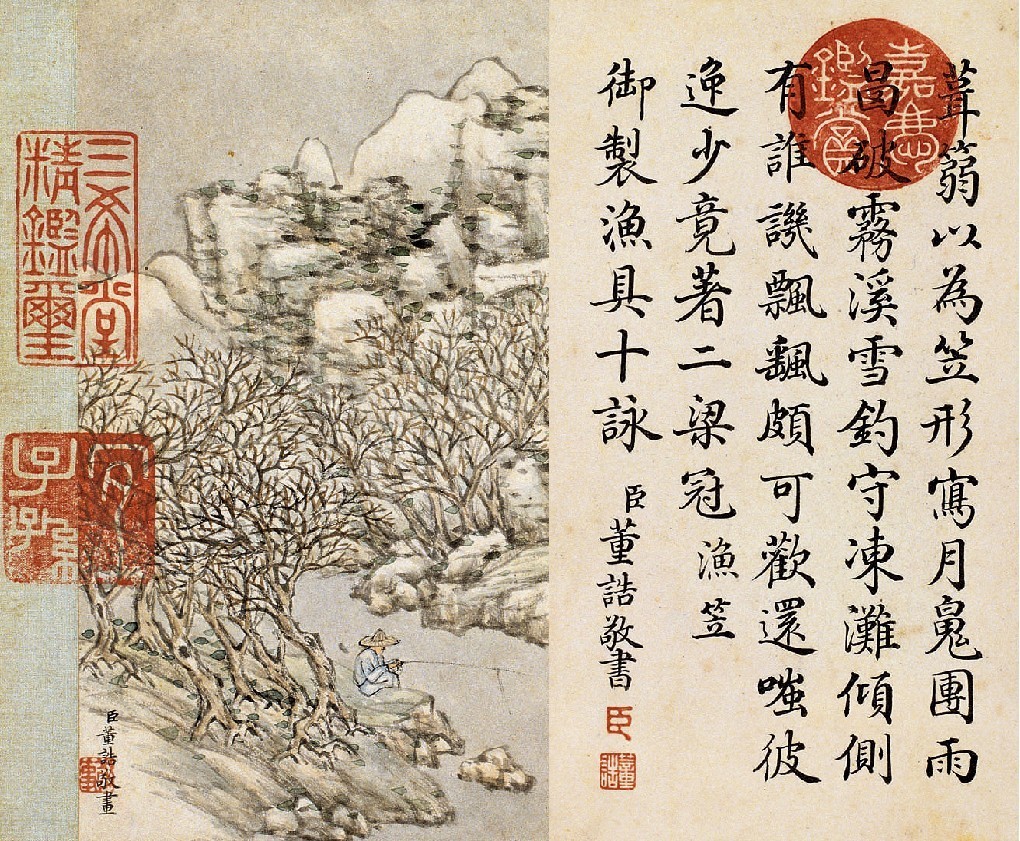 嘉慶鑑賞
葺篛以為笠形寫月團雨
冒破霧溪雪釣守凍灘傾側
有誰譏飄颻頗可歡還嗤彼
逸少竟著二梁冠 漁笠
御製漁具十詠
臣董誥敬書
臣
董誥
三希堂
精鑑璽
宜
子孫
臣董誥敬畫